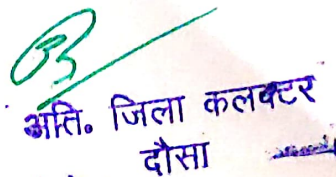 अति. जिला कलक्टर
दौसा